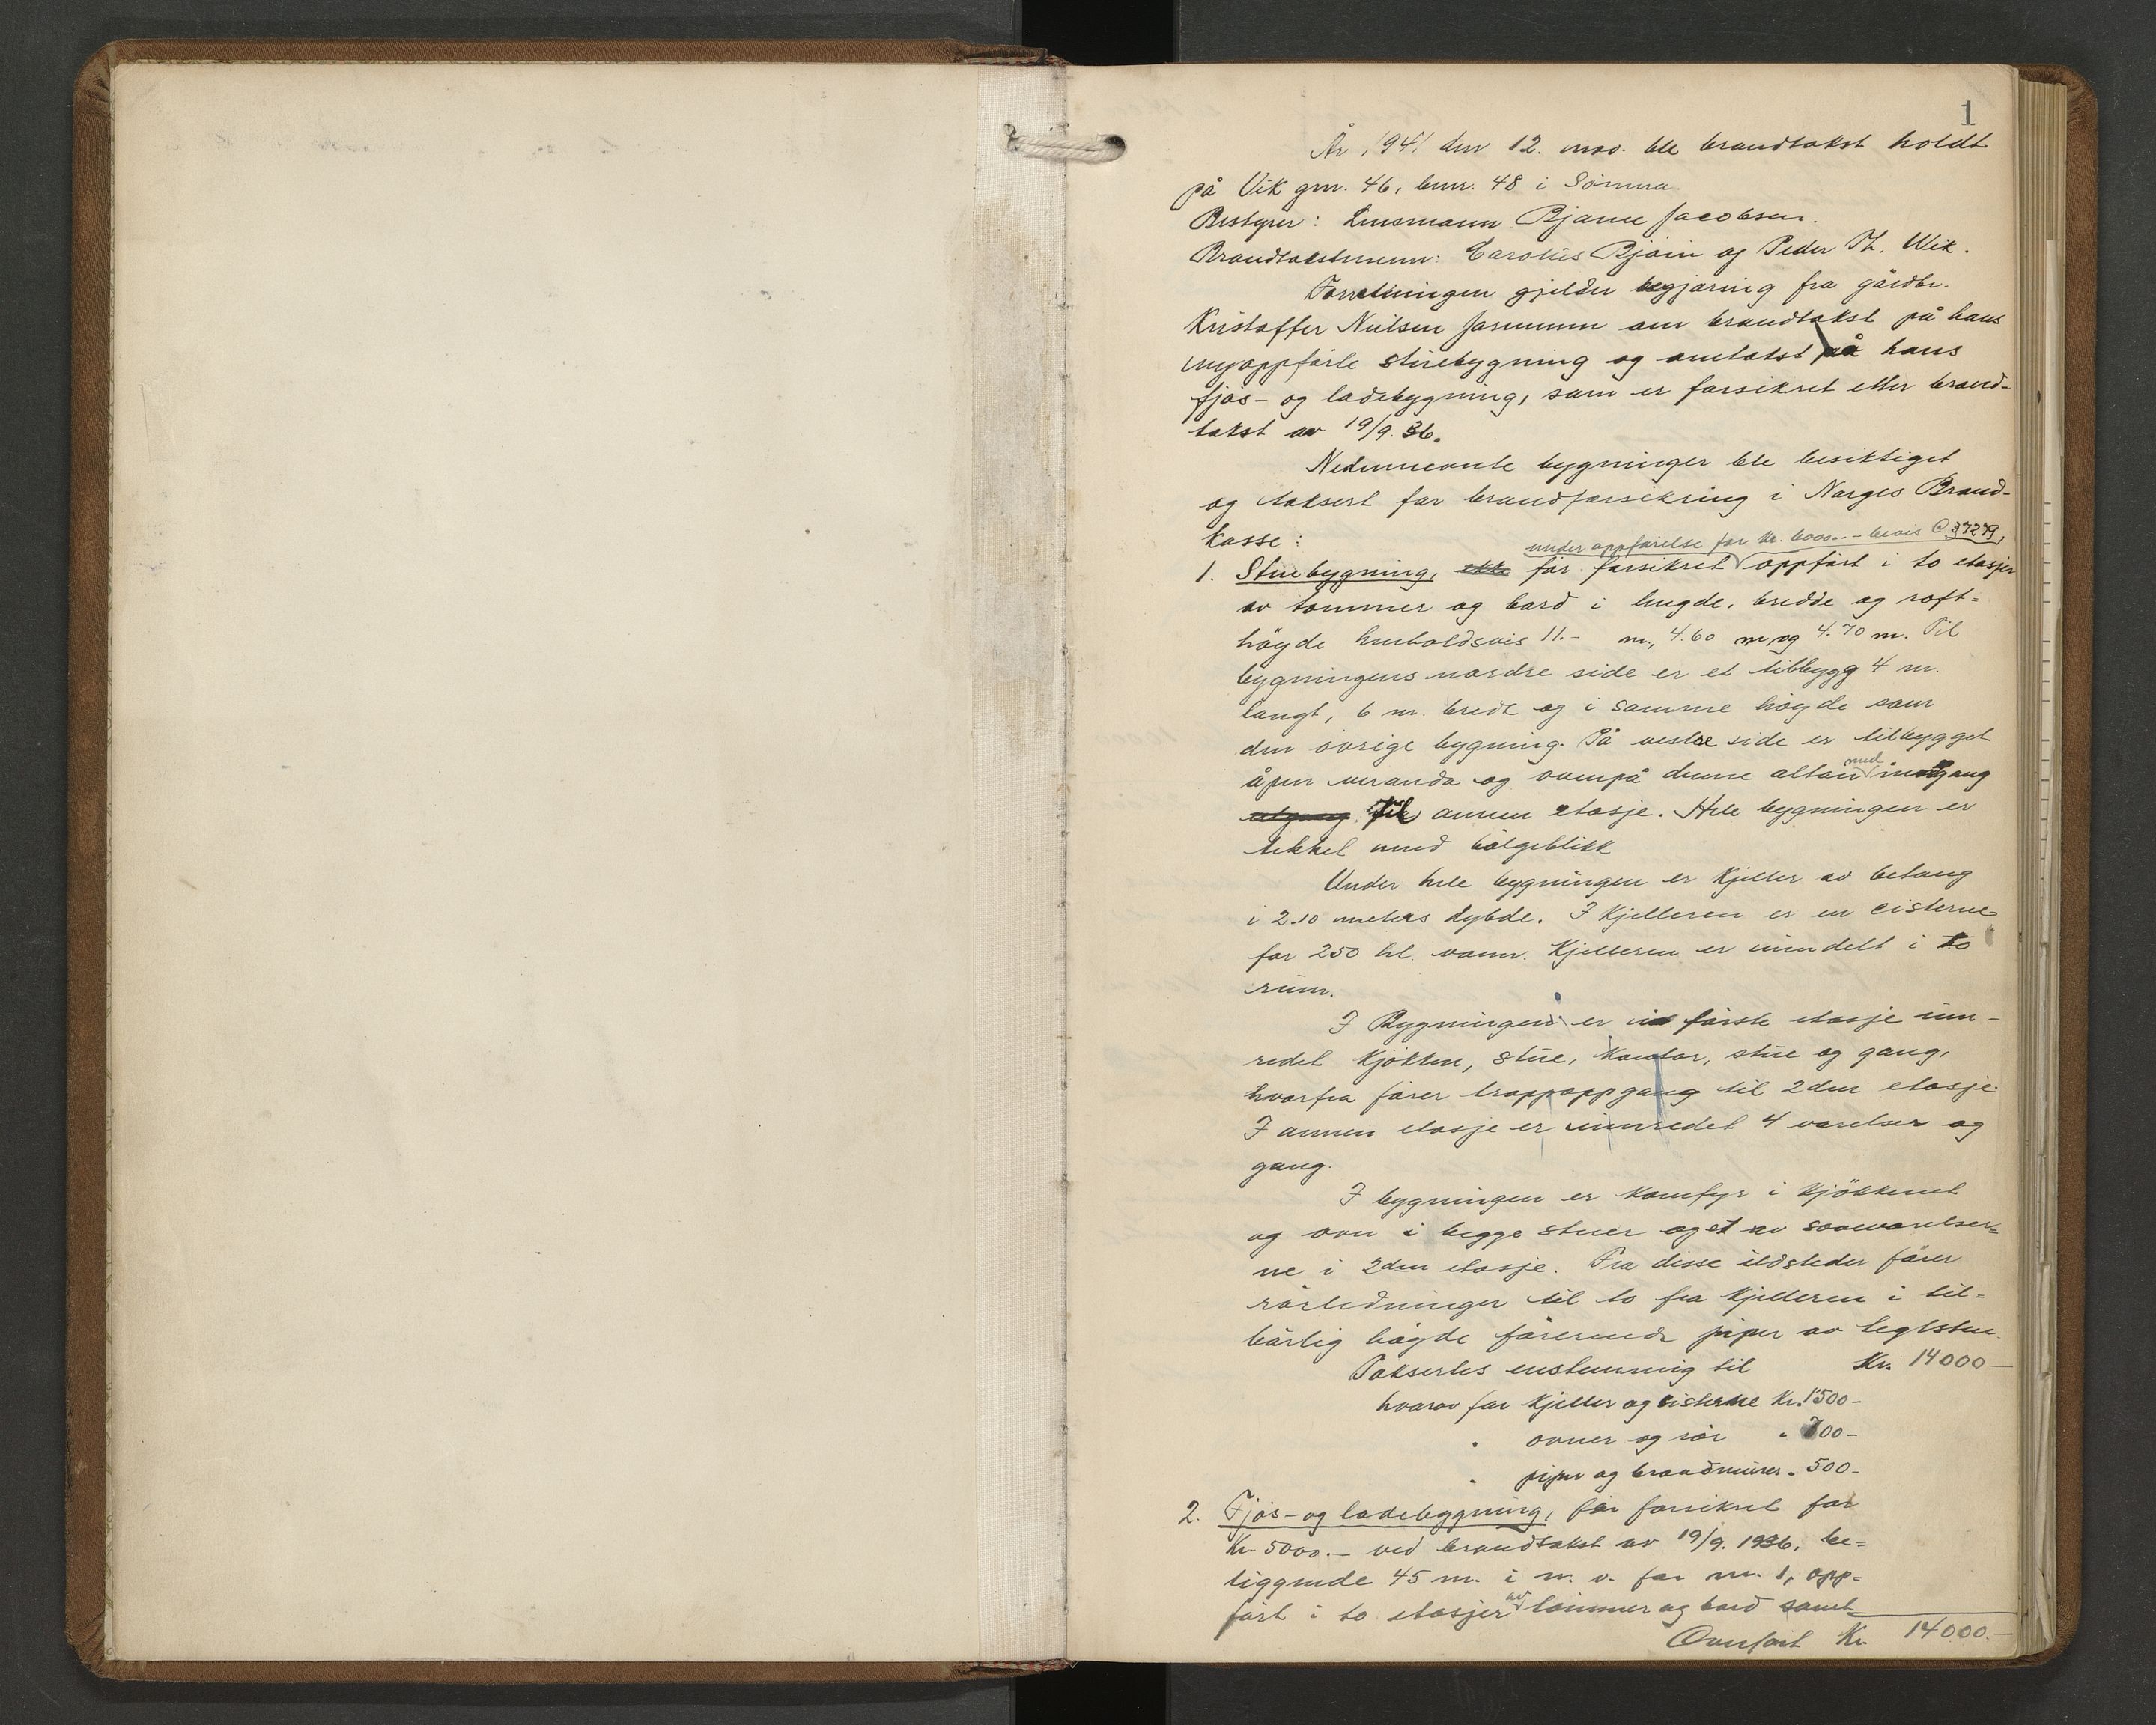 1
År 1941 den 12. nov. ble brandtakst holdt
på Vik gnr. 46, bnr. 48 i Sömna
Bestyrer: Lensmann Bjarne Jacobsen.
Brandtakstmenn: Carolius Bjöin og Peder Th. Wik.
Forretningen gjelder begjæring fra gårdbr.
Kristoffer Nielsen om brandtakst på hans
nyoppförte stuebygning og omtakst på hans
fjös- og ladebygning, som er forsikret etter brand-
takst av 19/9. 36.
Nedennevnte bygninger ble besiktiget
og taksert for brandforsikring i Norges Brand-
kasse:
under oppförelse for kr. 6000.- - bevis C 37279,
1. Stuebygning, ikke för forsikret oppfört i to etasjer
av tömmer og bord i lengde, bredde og röst-
höyde henholdsvis 11.- m., 4.60 m og 4.70 m. Til
bygningens nordre side er et tilbygg 4 m.
langt, 6 m. bredt og i samme höyde som
den övrige bygning. På vestre side er tilbygget
åpen veranda og ovenpå denne altan med inngang
utgang til annen etasje. Hele bygningen er
tekket med bölgeblikk
Under hele bygningen er kjeller av betong
i 2.10 meters dybde. I kjelleren er en cisterne
for 250 hl. vann. Kjelleren er inndelt i to
rum.
I Bygningens er i förste etasje inn-
redet kjökken, stue, kontor, stue og gang,
hvorfra förer trappoppgang til 2den etasje.
I annen etasje er innredet 4 værelser og
gang.
I bygningen er komfyr i kjökkenet
og ovn i begge stuer og et av soveværelser-
ne i 2den etasje. Fra disse ildsteder förer
rörledninger til to fra kjelleren i til-
börlig höyde förerende piper av teglsten.
Taksertes enstemmig til Kr. 14000-
hvorav for kjeller og cisterne Kr. 1500-
" ovner og rör " 700-
" piper og brandmurer " 500-
2. Fjös- og ladebygning, för forsikret for
Kr. 5000.- ved brandtakst av 19/9. 1936, be-
liggende 45 m. i n. v. for nr. 1, opp-
fört i to etasjer av tömmer og bord samt
Overfört Kr. 14000.-